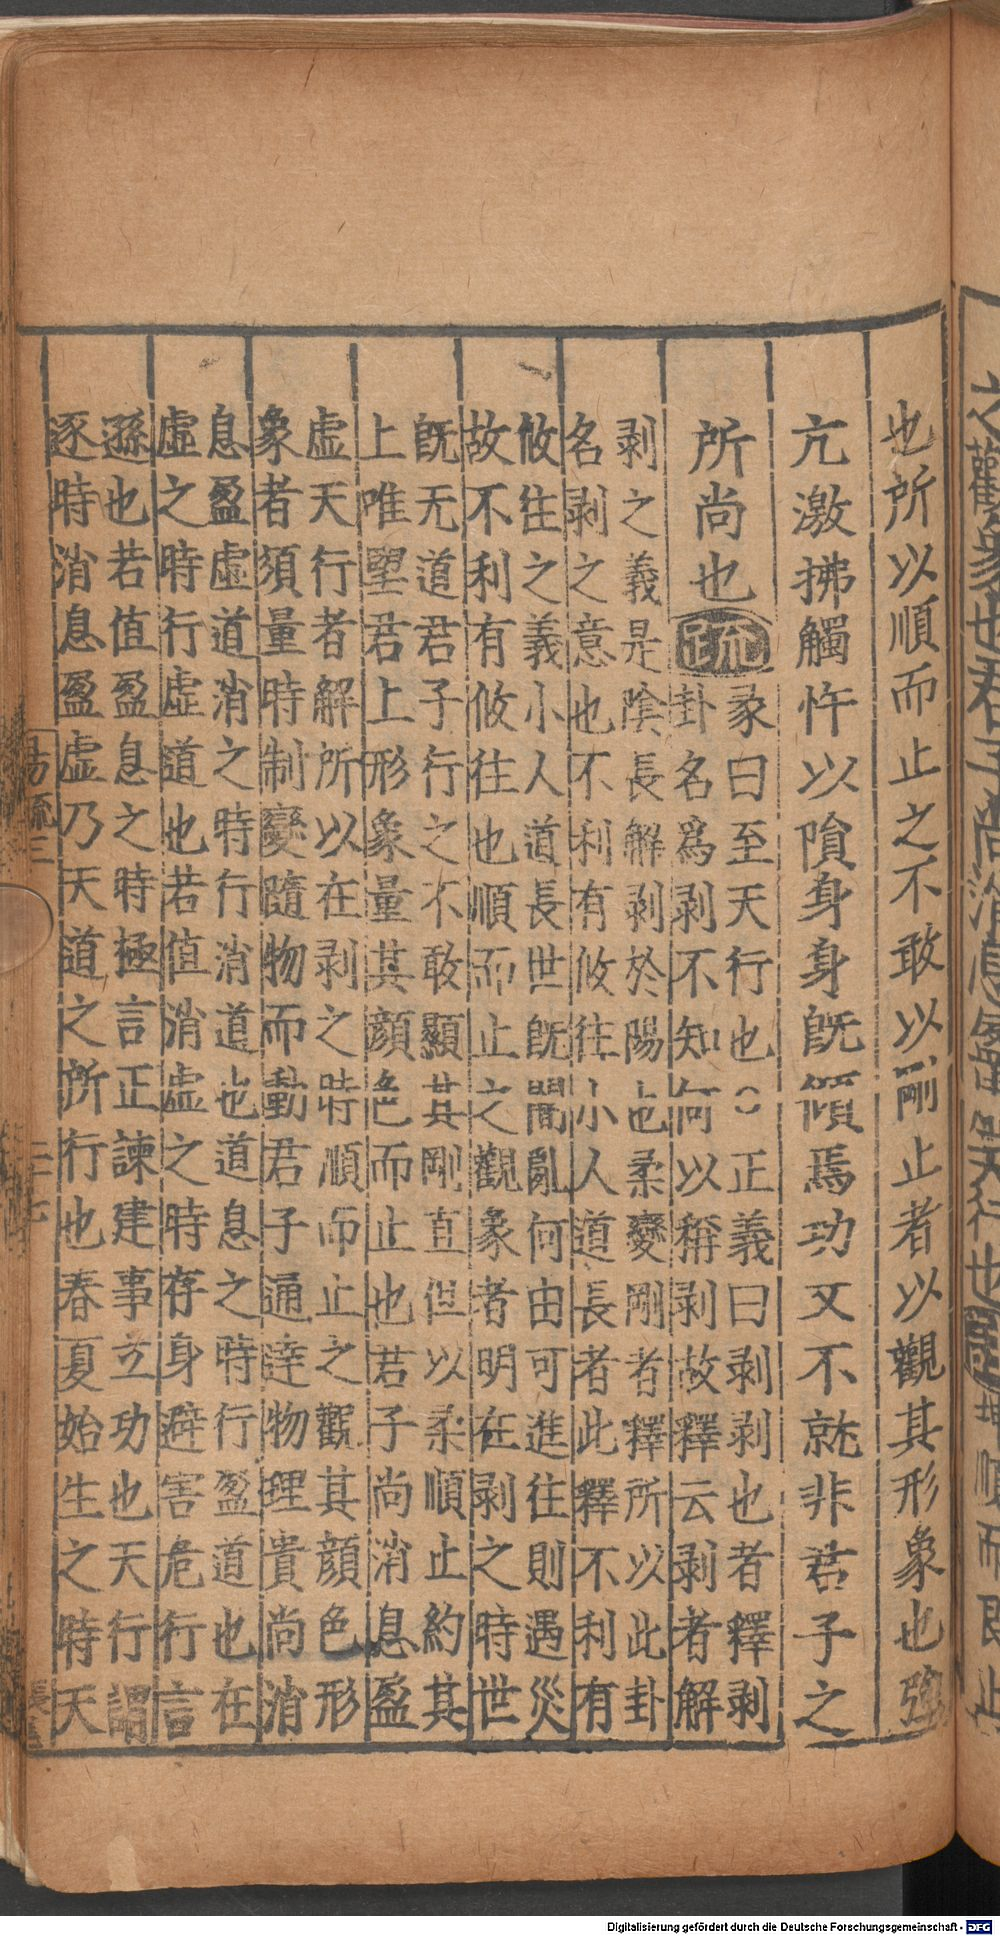 也所以順而止之不敢以剛止者以觀其形象也強
亢激拂觸忤以隕身身旣傾焉功又不就非君子之
所尚也
疏
彖曰至天行也○正義曰剥剥也者釋剥
卦名爲剥不知何以稱剥故釋云剥者解
剥之義是陰長解剥於陽也柔變剛者釋所以此卦
名剥之意也不利有攸往小人道長者此釋不利有
攸往之義小人道長世旣闇亂何由可進往則遇災
故不利有攸往也順而止之觀象者明在剥之時世
旣无道君子行之不敢顯其剛直但以柔順止約其
上唯望君上形象量其顔色而止也君子尚消息盈
虛天行者解所以在剥之時順而止之觀其顔色形
象者須量時制變隨物而動君子通達物理貴尚消
息盈虛道消之時行消道也道息之時行盈道也在
虛之時行虛道也若值消虛之時存身避害危行言
遜也若值盈息之時極言正諫建事立功也天行謂
逐時消息盈虛乃天道之所行也春夏始生之時天
易疏三
二十七
Digitalisierung gefördert durch die Deutsche Forschungsgemeinschaft - DFG